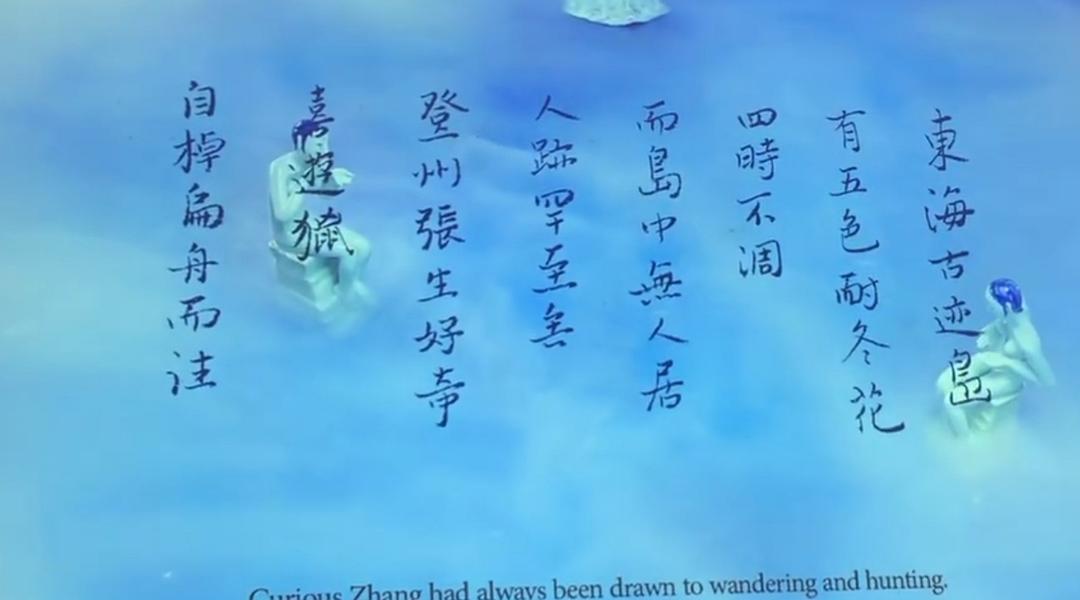 東海古迹島
有五色耐冬花
四時不凋
而島中無人居
人跡罕至
登州張生好奇
喜遊獵
自棹扁舟而往
Curious Zhang had always been drawn to wandering and hunting.